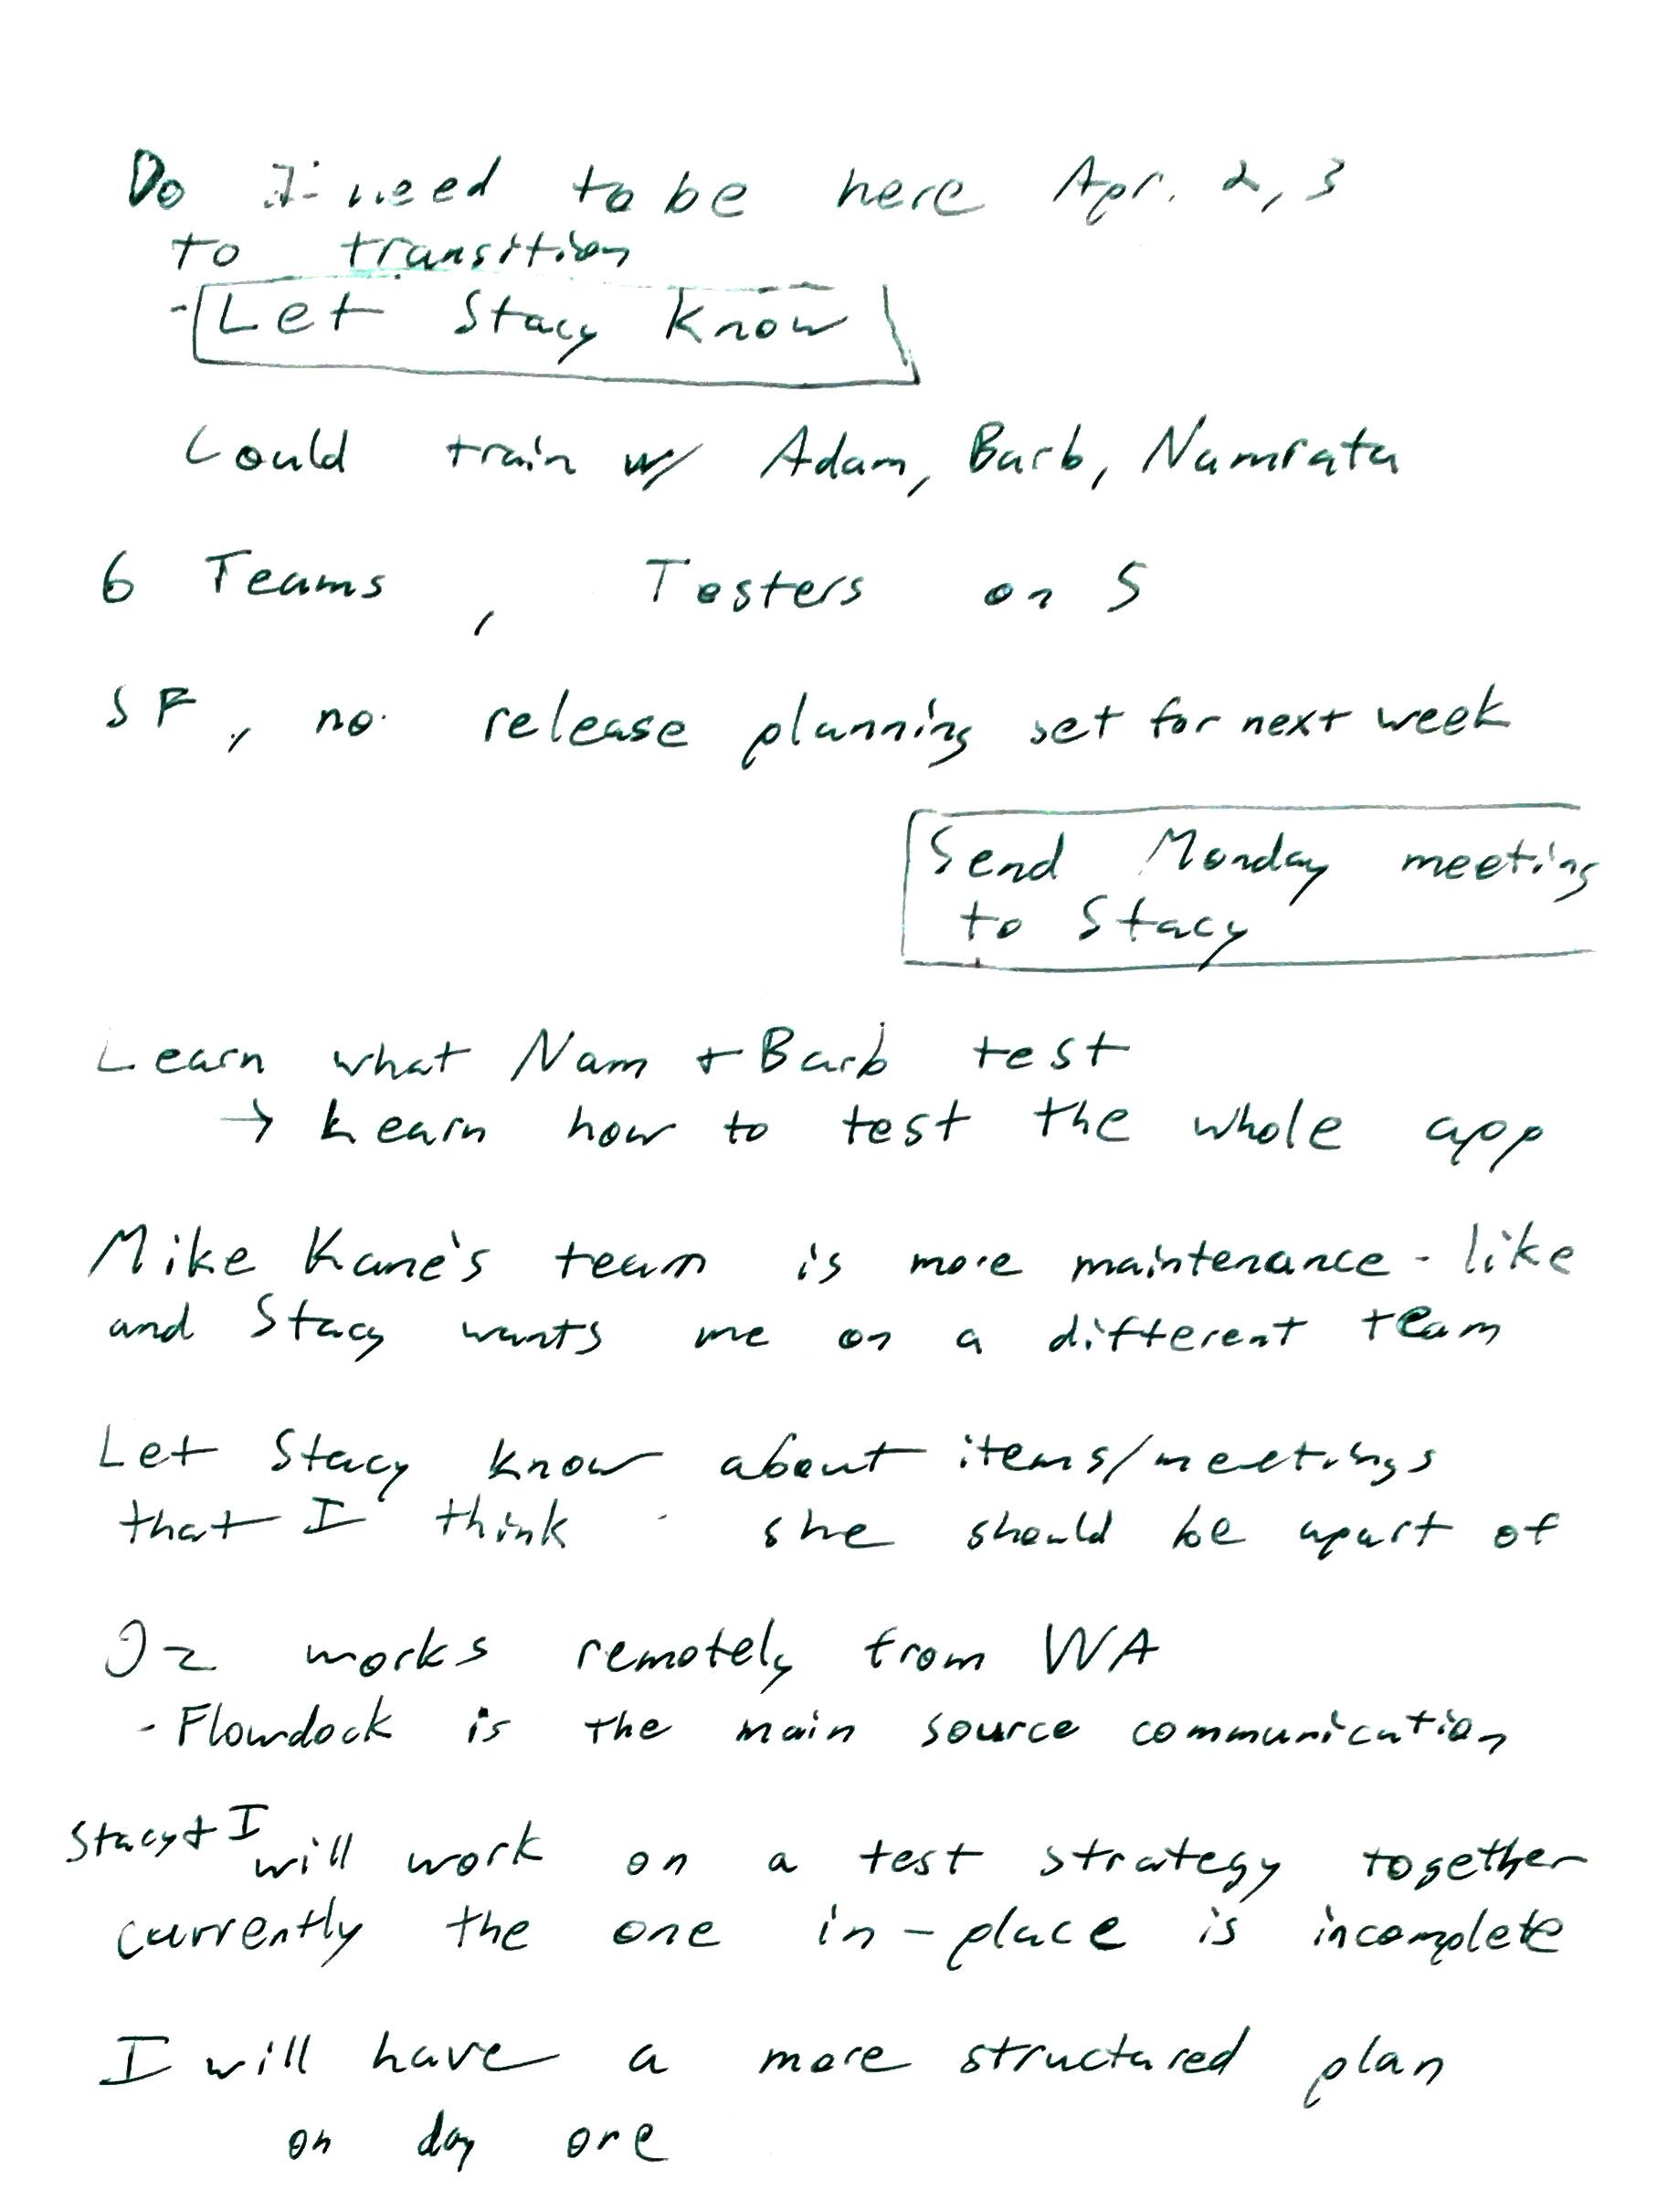 Do I need to be here Apr. 2, 3
to transition
- Let Stacy know
Could train w/ Adam, Barb, Namrata
6 Teams, Testers on 5
SF, no release planning set for next week
Send Monday meeting
to Stacy
Learn what Nam + Barb test
→ Learn how to test the whole app
Mike Kane's team is more maintenance-like
and Stacy wants me on a different team
Let Stacy know about items/meetings
that I think she should be apart of
Oz works remotely from WA
- Flowdock is the main source communication
Stacy + I will work on a test strategy together
currently the one in-place is incomplete
I will have a more structured plan
on day one